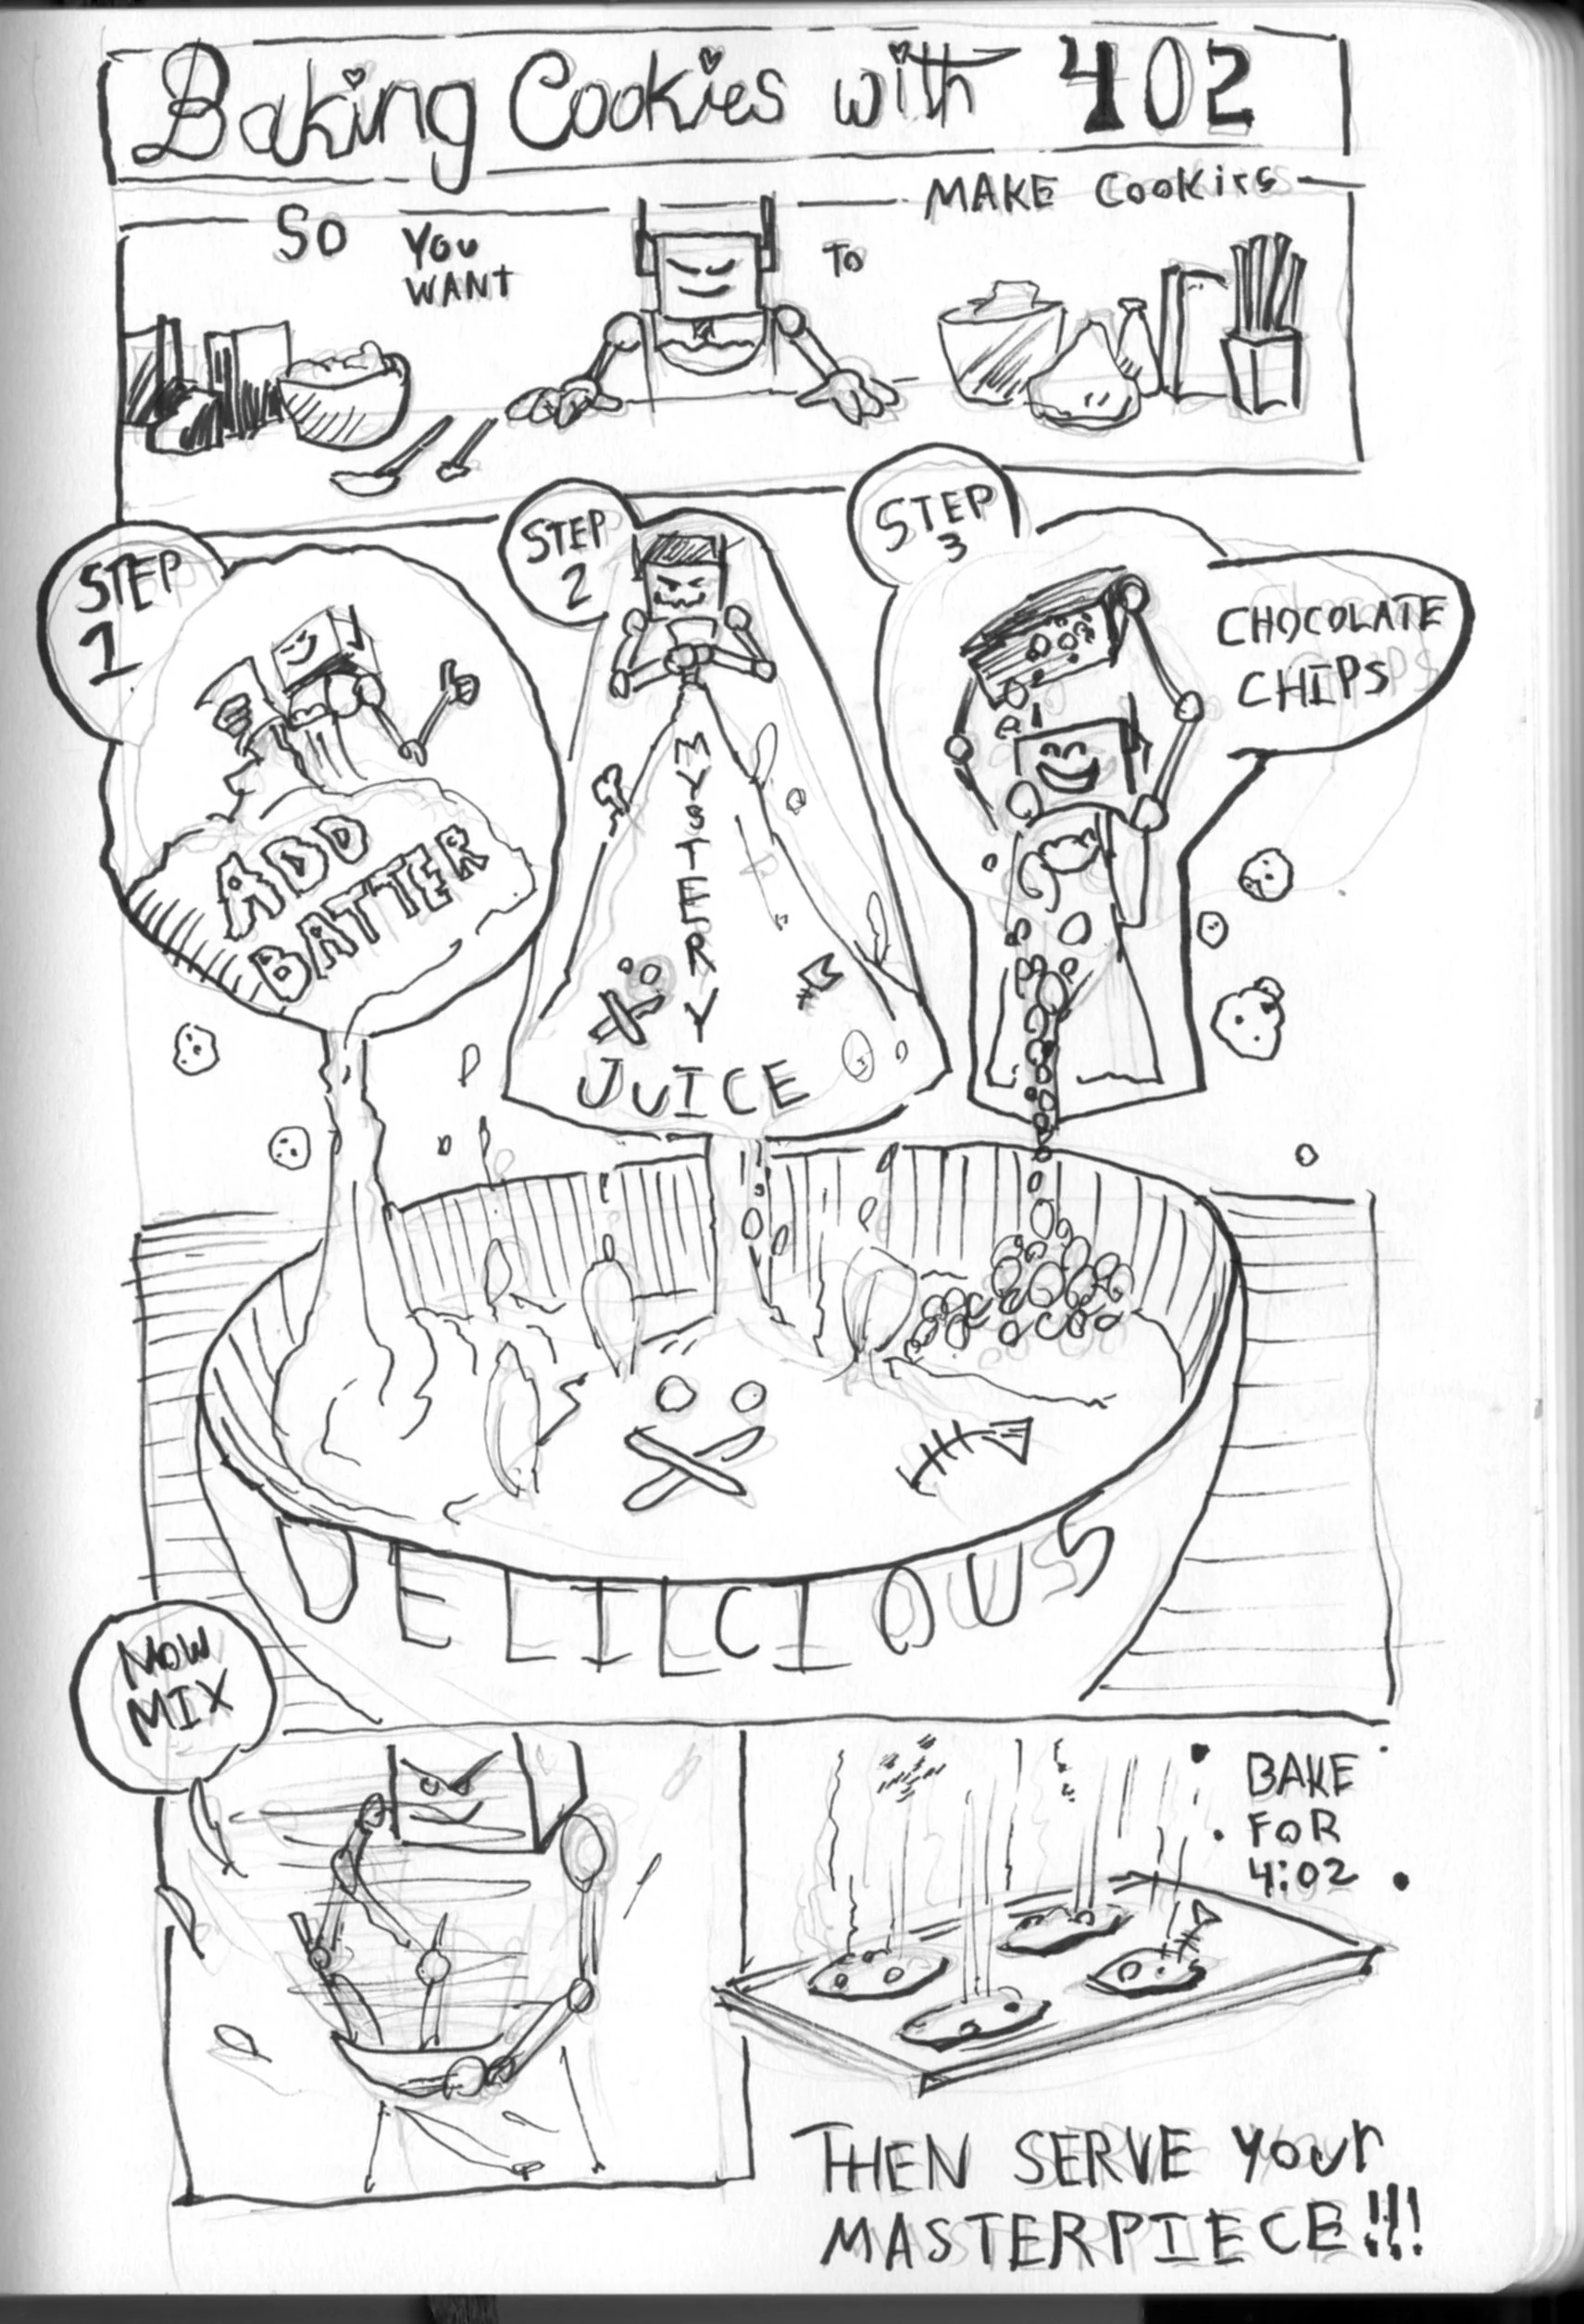 Baking Cookies with 402
SO YOU WANT TO MAKE COOKIES
STEP 1
ADD
BATTER
STEP 2
MYSTERY
JUICE
STEP 3
CHOCOLATE
CHIPS
DELILCIOUS
NOW
MIX
BAKE
FOR
4:02
THEN SERVE your
MASTERPIECE!!!